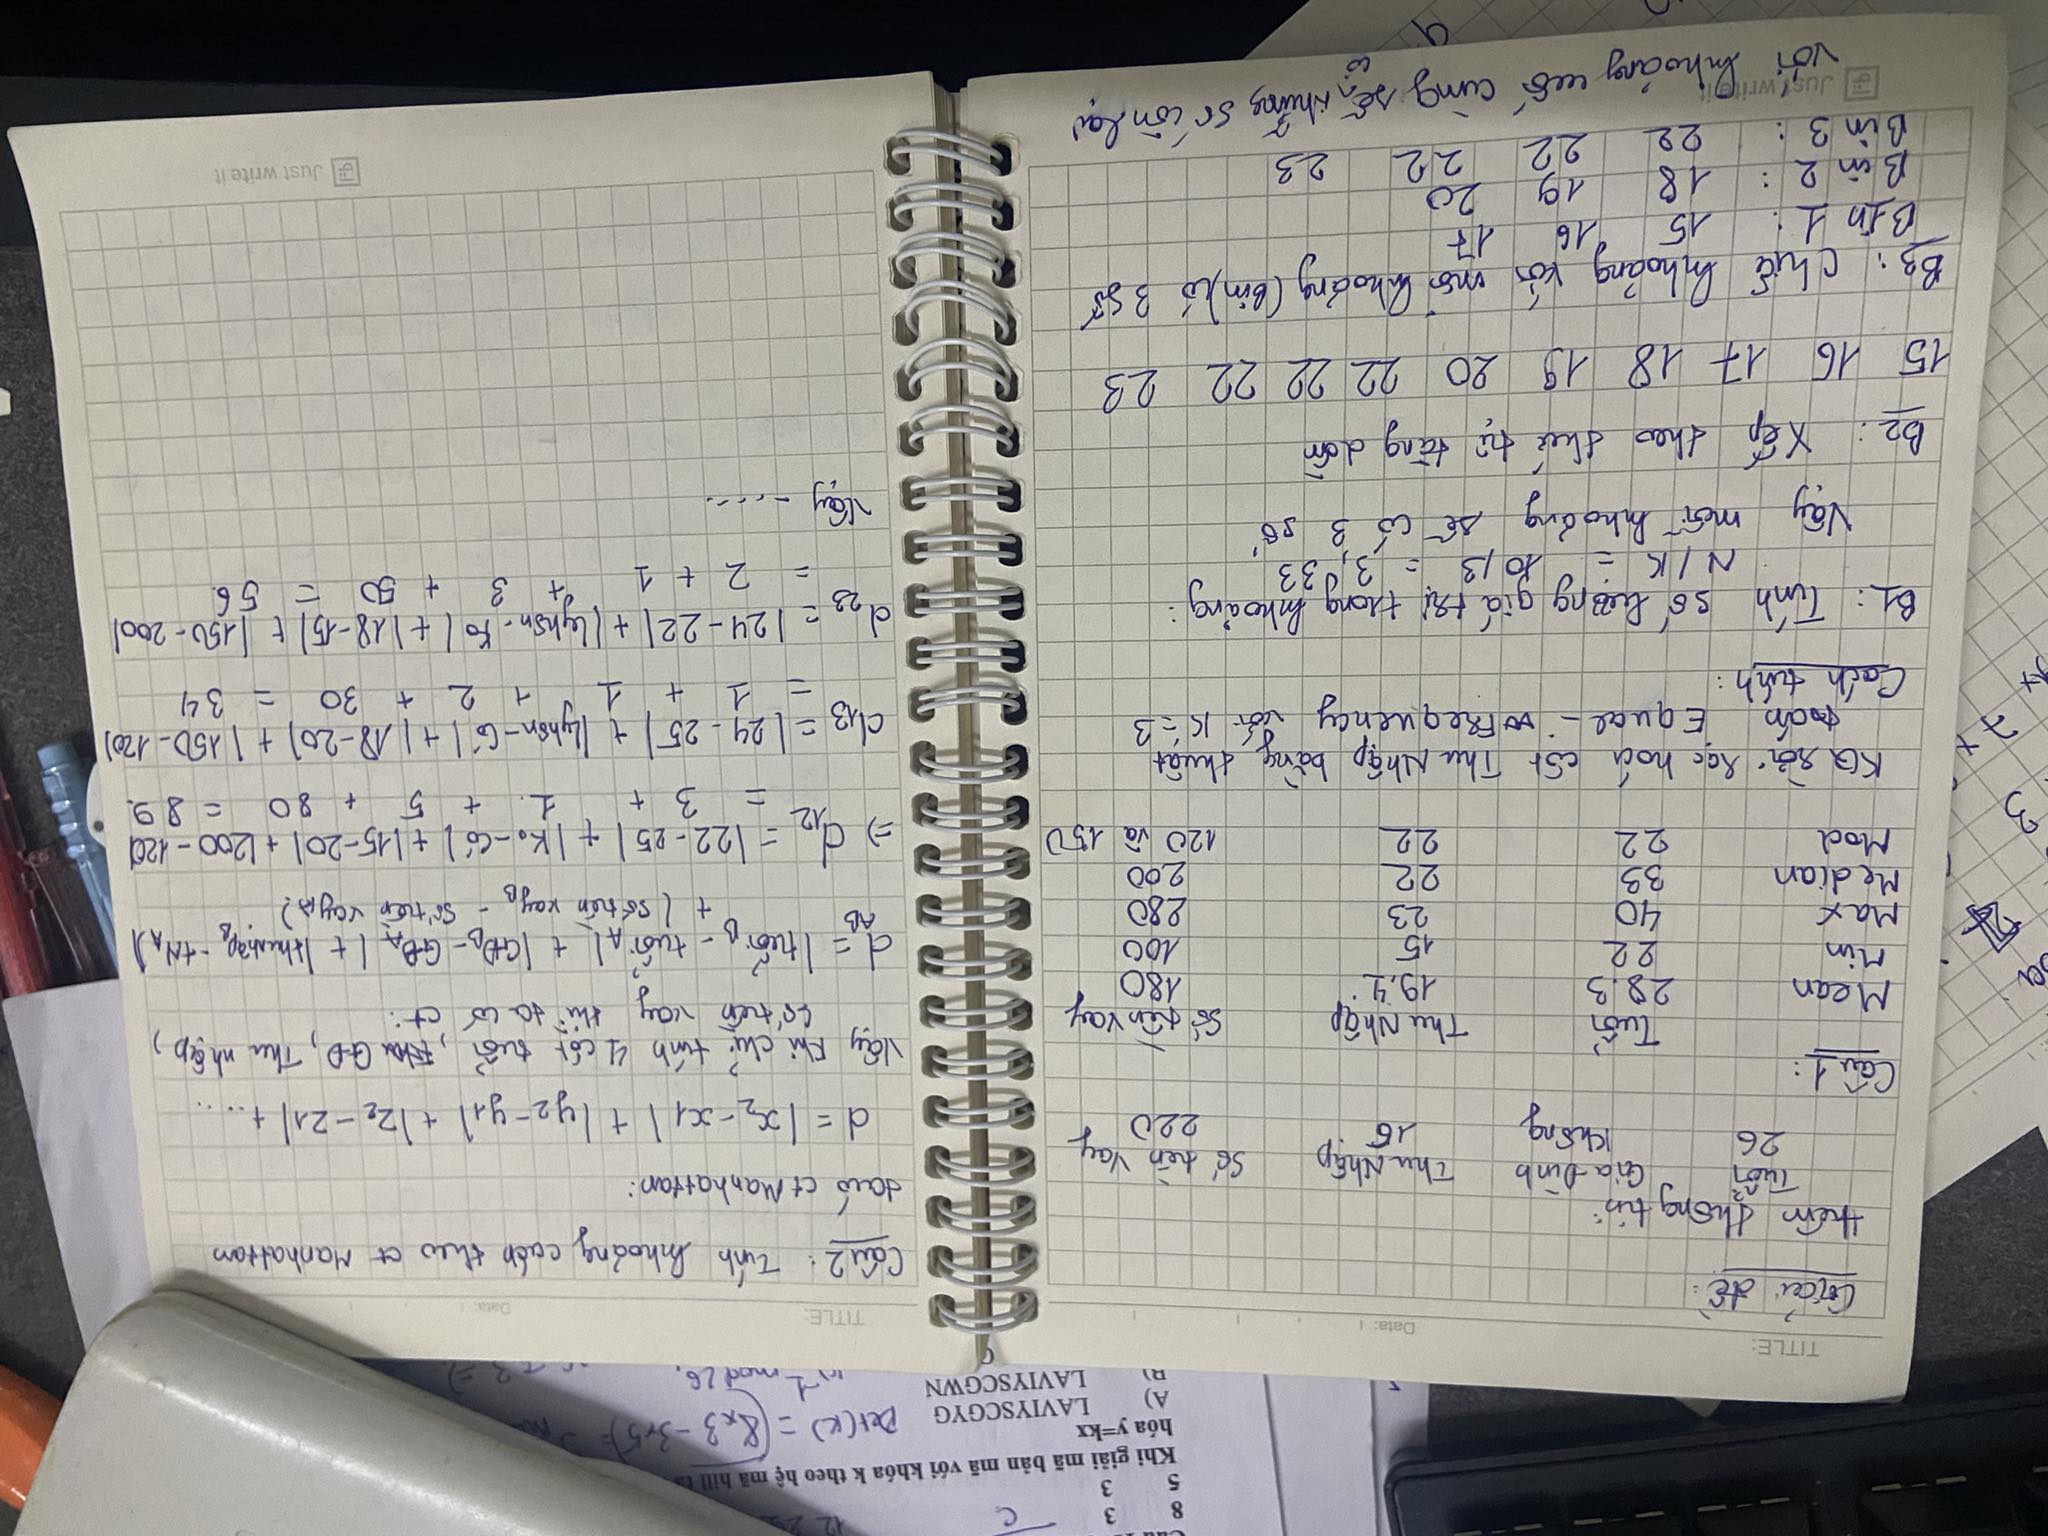 8 3
5 3
Khi giải mã bản mã với khóa k theo hệ mã hill
hóa y=kx
A) LAVIYSCGYG
B) LAVIYSCGWN
Det(K) = (8x3-3x5)=
mod 26.
TITLE:
Data:
Giải đề:
thêm thông tin:
Tuổi Gia Đình Thu Nhập Số tiền Vay
26 Không 16 220
Câu 1:
Tuổi Thu Nhập Số tiền vay
Mean 28.3 19.4 180
Min 22 15 100
Max 40 23 280
Median 33 22 200
Mod 22 22 120 và 150
KQ rời rạc hoá cột Thu Nhập bằng thuật
toán Equal - Frequency với K=3
Cách tính:
B1: Tính số lượng giá trị trong khoảng:
N/K = 10/3 = 3,33
Vậy mỗi khoảng sẽ có 3 số
B2: Xếp theo thứ tự tăng dần
15 16 17 18 19 20 22 22 22 23
B3: chia khoảng với mỗi khoảng (bin) có 3 số
Bin 1: 15 16 17
Bin 2: 18 19 20
Bin 3: 22 22 22 23
Just write it
với khoảng cuối cùng sẽ có những số còn lại
TITLE:
Data:
Câu 2: Tính khoảng cách theo ct Manhattan
ta có ct Manhattan:
d = |x2-x1| + |y2-y1| + |z2-z1| + ....
Vậy khi chỉ tính 4 cột tuổi, GĐ, Thu nhập,
số tiền vay thì ta có ct:
dAB = |tuổiB - tuổiA| + |GĐB - GĐA| + |thu nhậpB - tNA|
+ (số tiền vayB - số tiền vayA)
=> d12 = |22-25| + |Ko-Có| + |15-20| + |200-120|
= 3 + 1 + 5 + 80 = 89.
d13 = |24-25| + |Lyhôn-Có| + |18-20| + |150-120|
= 1 + 1 + 2 + 30 = 34
d23 = |24-22| + |Lyhôn-Ko| + |18-15| + |150-200|
= 2 + 1 + 3 + 50 = 56.
Vậy -....
Just write it